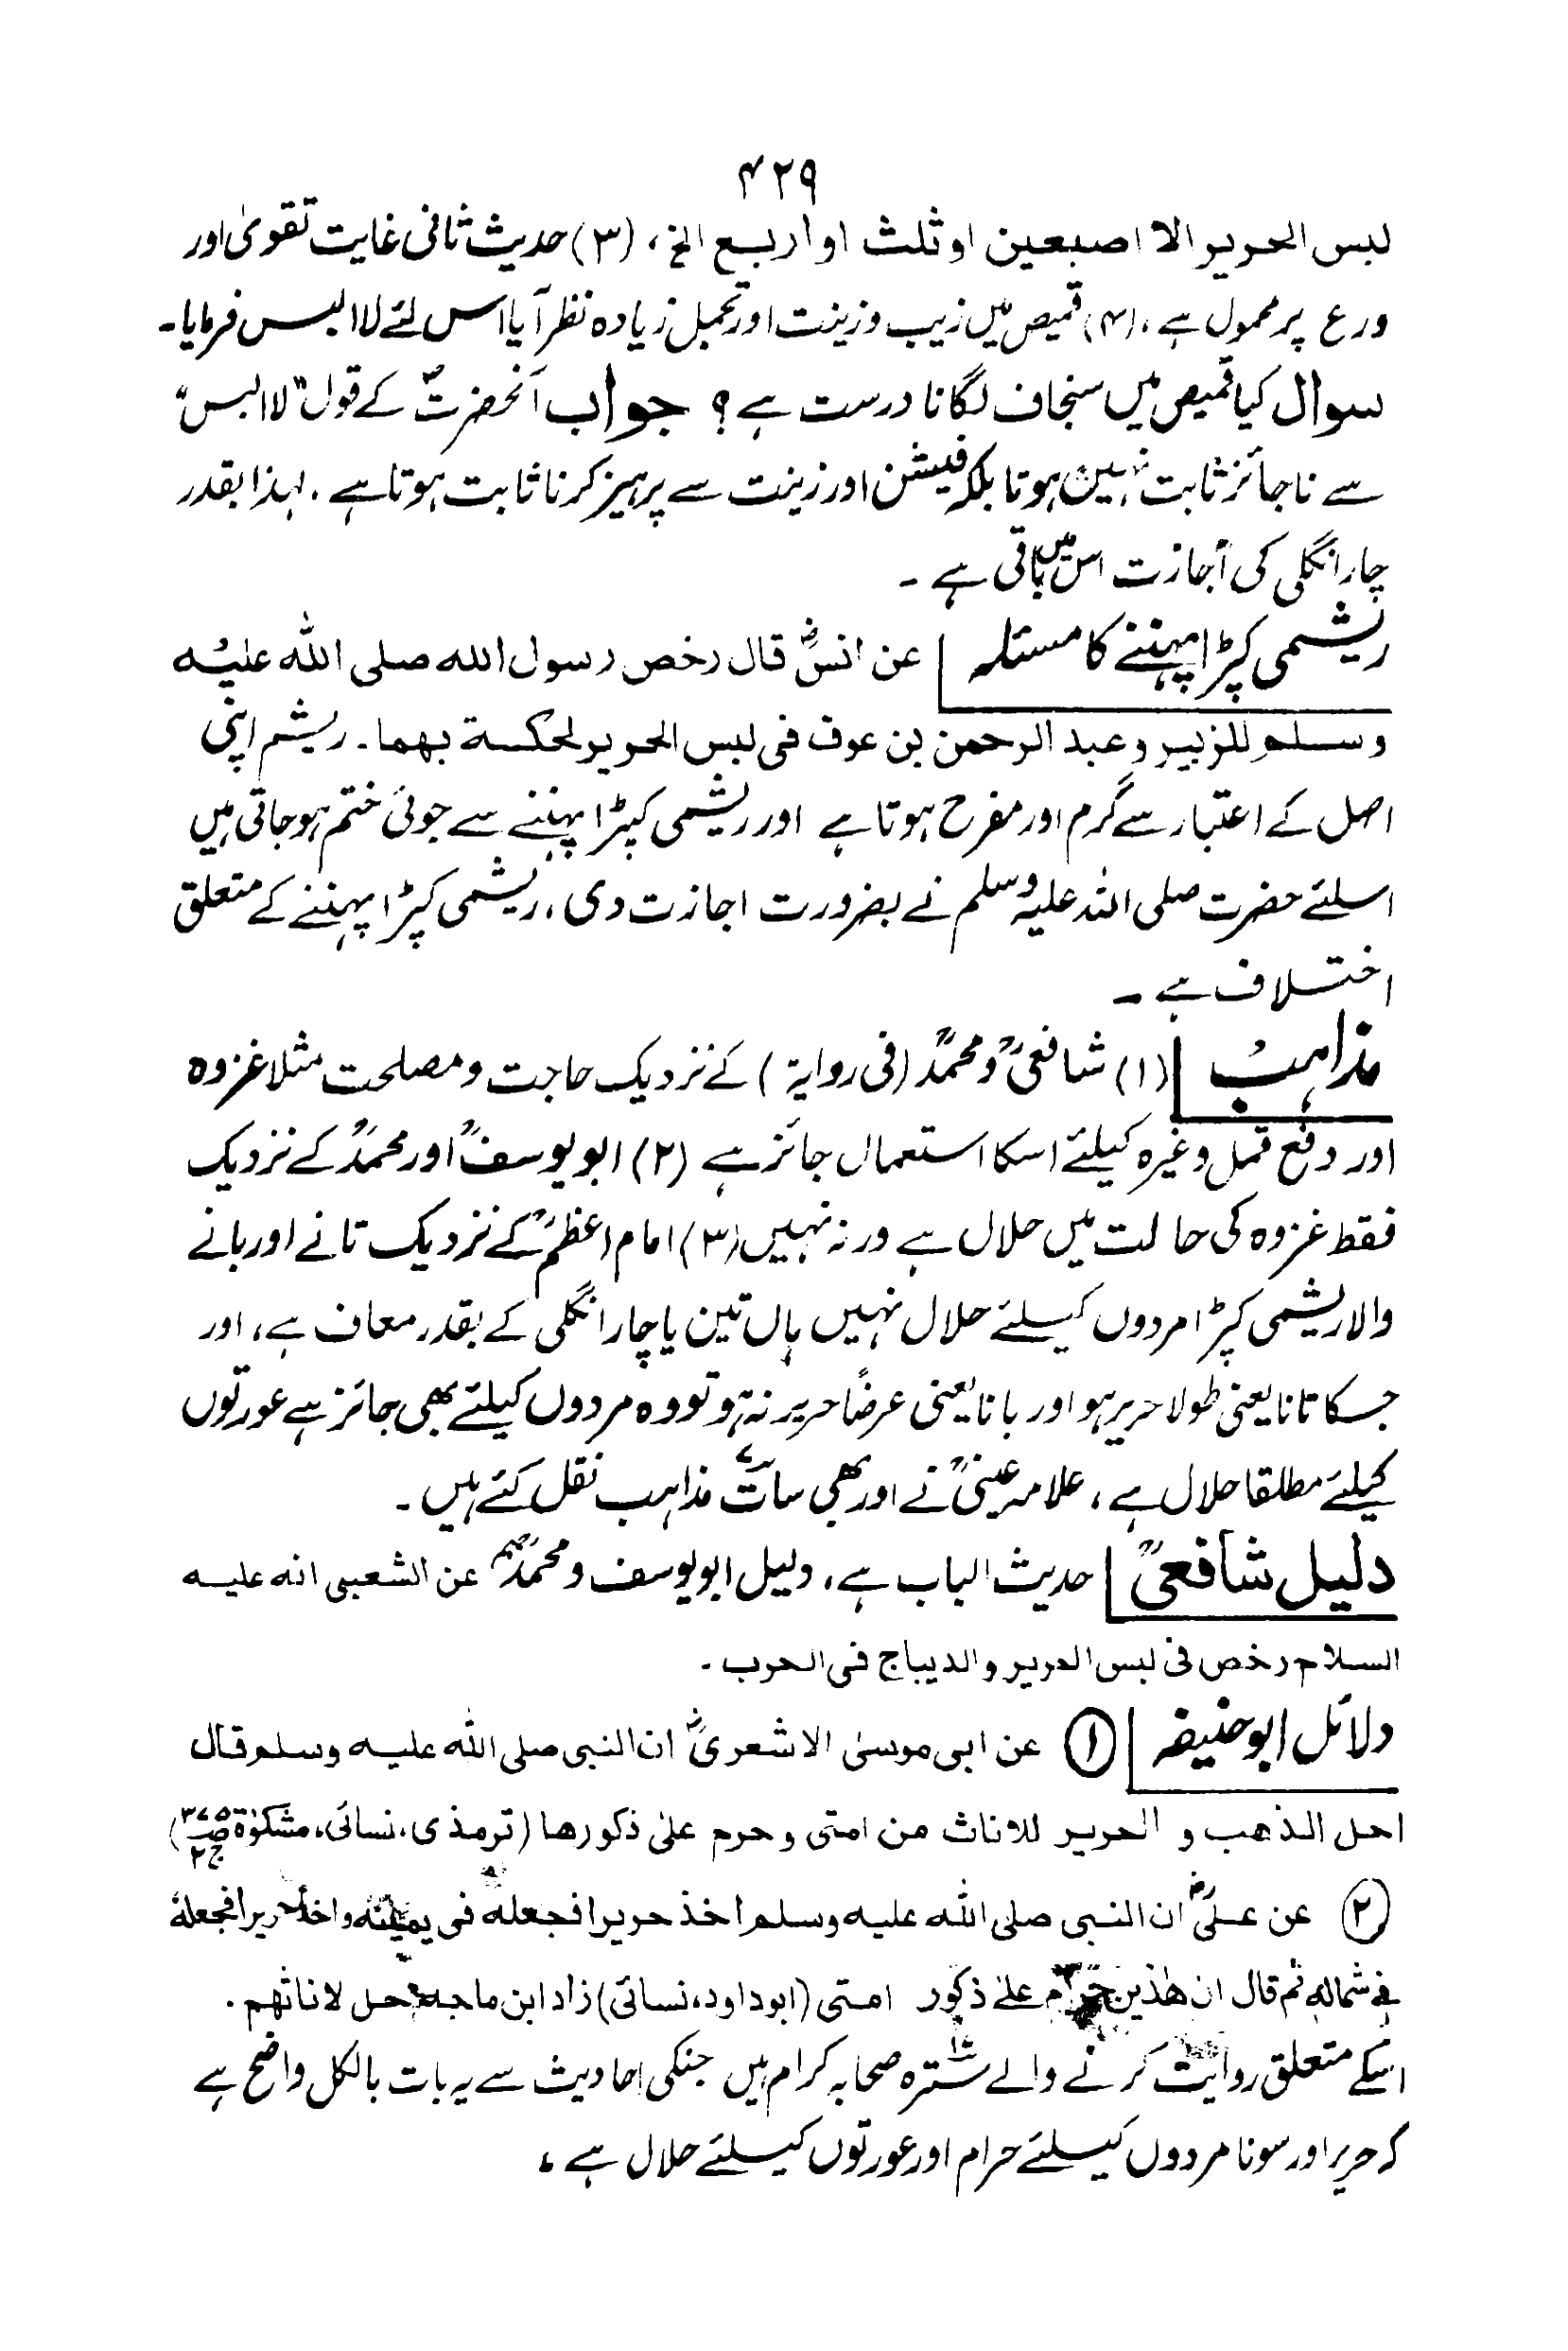 ۴۲۹
لبس الحریر الا اصبعین او ثلث او اربع الخ، (۳) حدیث ثانی غایت تقویٰ اور
ورع پر محمول ہے، (۴) قمیص میں زیب و زینت اور تجمل زیادہ نظر آیا اس لئے لا البس فرمایا۔
سوال کیا قمیص میں سنجاف لگانا درست ہے؟ جواب آنحضرتؐ کے قول "لا البس"
سے ناجائز ثابت نہیں ہوتا بلکہ فیشن اور زینت سے پرہیز کرنا ثابت ہوتا ہے، لہذا بقدر
چار انگلی کی اجازت اس میں باقی ہے ۔
ریشمی کپڑا پہننے کا مسئلہ عن انسؓ قال رخص رسول الله صلی الله علیه
وسلم للزبیر وعبد الرحمن بن عوف فی لبس الحریر لحکة بهما۔ ریشم اپنی
اصل کے اعتبار سے گرم اور مفرح ہوتا ہے اور ریشمی کپڑا پہننے سے جوئیں ختم ہوجاتی ہیں
اسلئے حضرت صلی اللہ علیہ وسلم نے بضرورت اجازت دی، ریشمی کپڑا پہننے کے متعلق
اختلاف ہے ۔
مذاہب (۱) شافعیؒ و محمدؒ (فی روایة) کے نزدیک حاجت و مصلحت مثلا غزوہ
اور دفع قمل وغیرہ کیلئے اسکا استعمال جائز ہے (۲) ابو یوسفؒ اور محمدؒ کے نزدیک
فقط غزوہ کی حالت میں حلال ہے ورنہ نہیں (۳) امام اعظمؒ کے نزدیک تانے اور بانے
والا ریشمی کپڑا مردوں کیلئے حلال نہیں ہاں تین یا چار انگلی کے بقدر معاف ہے، اور
جسکا تانا یعنی طولا حریر ہو اور بانا یعنی عرضًا حریر نہ ہو تو وہ مردوں کیلئے بھی جائز ہے عورتوں
کیلئے مطلقا حلال ہے، علامہ عینیؒ نے اور بھی سات مذاہب نقل کئے ہیں ۔
دلیل شافعیؒ حدیث الباب ہے، دلیل ابو یوسف و محمدؒ عن الشعبی انه علیه
السلام رخص فی لبس الحریر والدیباج فی الحرب ۔
دلائل ابو حنیفہ ① عن ابی موسیٰ الاشعریؓ ان النبی صلی الله علیه وسلم قال
احل الذهب و الحریر للاناث من امتی وحرم علیٰ ذکورها (ترمذی، نسائی، مشکوٰة ص۳۷۵ ج۲)
② عن علیؓ ان النبی صلی الله علیه وسلم اخذ حریرا فجعله فی یمینه واخذ حریرا فجعله
فی شماله ثم قال ان هٰذین حرام علیٰ ذکور امتی (ابوداود، نسائی) زاد ابن ماجه حل لاناثهم ۔
اسکے متعلق روایت کرنے والے سترہ صحابہ کرام ہیں جنکی احادیث سے یہ بات بالکل واضح ہے
کہ حریر اور سونا مردوں کیلئے حرام اور عورتوں کیلئے حلال ہے ،